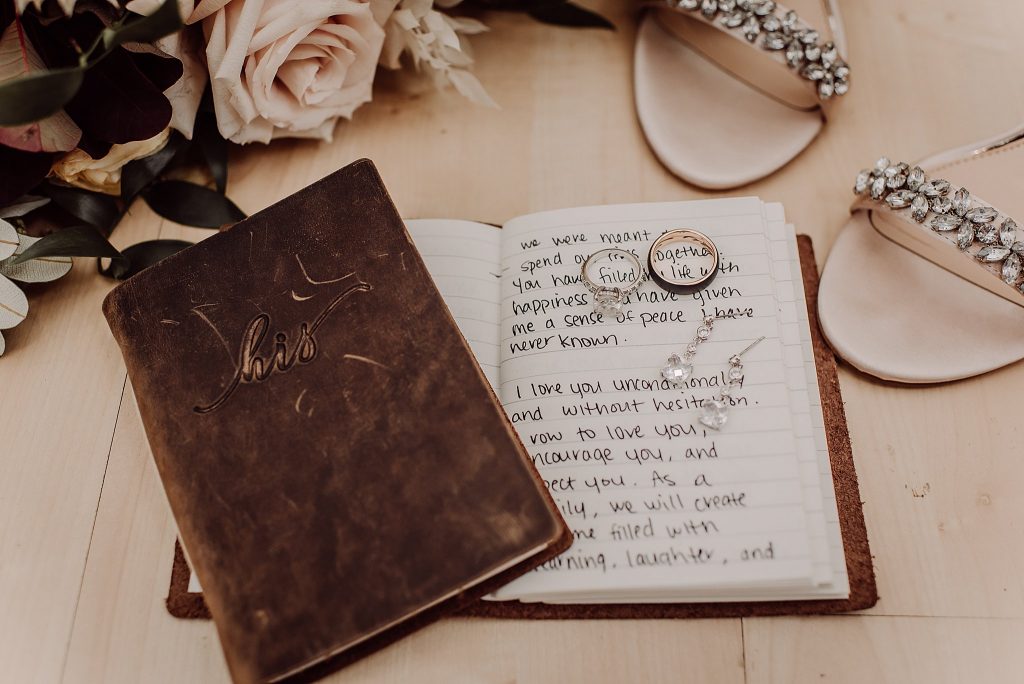 his
we were meant
spend together
you have filled life with
happiness have given
me a sense of peace I have
never known.
I love you unconditionally
and without hesitation.
vow to love you,
encourage you, and
you. As a
we will create
filled with
laughter, and